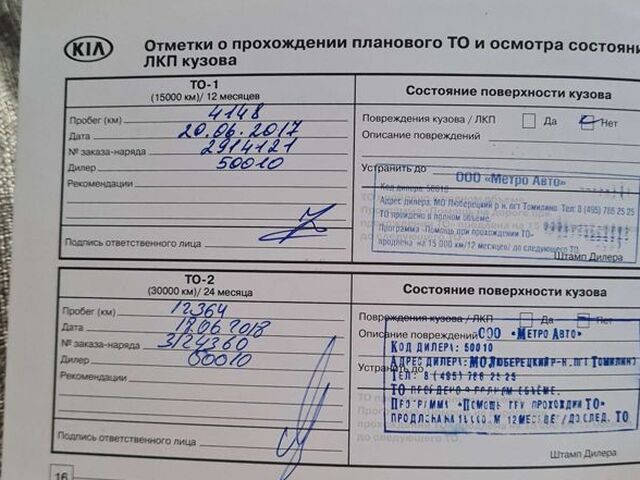 KIA
Отметки о прохождении планового ТО и осмотра состояни
ЛКП кузова
ТО-1
(15000 км)/ 12 месяцев
Пробег (км) 4148
Дата 20.06.2017
№ заказа-наряда 2914121
Дилер 50010
Рекомендации
Подпись ответственного лица
Состояние поверхности кузова
Повреждения кузова / ЛКП Да Нет
Описание повреждений
Устранить до
ООО «Метро Авто»
Код дилера: 50010
Адрес дилера: МО Люберецкий р-н, пгт Томилино Тел: 8 (495) 786 25 25
ТО пройдено в полном объеме.
Программа «Помощь при прохождении ТО»
продлена на 15 000 км/12 месяцев/ до следующего ТО.
Штамп Дилера
ТО-2
(30000 км)/ 24 месяца
Пробег (км) 12364
Дата 19.06 2018
№ заказа-наряда 3124360
Дилер 50010
Рекомендации
Подпись ответственного лица
Состояние поверхности кузова
Повреждения кузова / ЛКП Да Нет
Описание повреждений
Устранить до
ООО «Метро Авто»
Код дилера: 50010
Адрес дилера: МО Люберецкий р-н, пгт Томилино
Тел: 8 (495) 786 25 25
ТО пройдено в полном объеме.
Программа «Помощь при прохождии ТО»
продлена на 15000 м 12 месяце / до след. ТО
Штамп Дилера
16